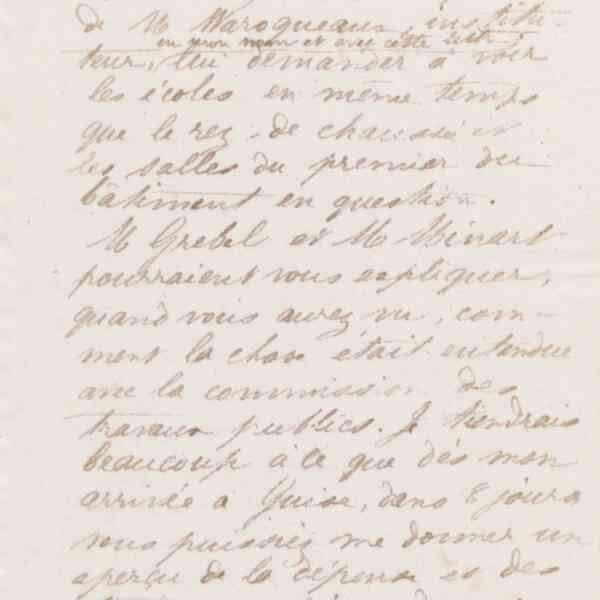 de M Waroqueaux, institu-
en mon nom et avec cette lettre
teur, lui demander à voir
les écoles en même temps
que le rez-de chaussée et
les salles du premier du
bâtiment en question.
M Grebel et M Minart
pourraient vous expliquer,
quand vous aurez vu, com-
ment la chose était entendue
avec la commission des
travaux publics. Je tiendrais
beaucoup à ce que dès mon
arrivée à Guise, dans 8 jours
vous puissiez me donner un
aperçu de la dépense et des